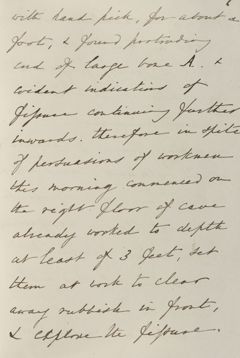 with hand pick, for about a
foot, & found protruding
end of large bone R. &
evident indications of
fissure continuing further
inwards. therefore in spite
of persuasions of workmen
this morning commenced on
the right floor of cave
already worked to depth
at least of 3 feet, set
them at work to clear
away rubbish in front,
& explore the fissure.